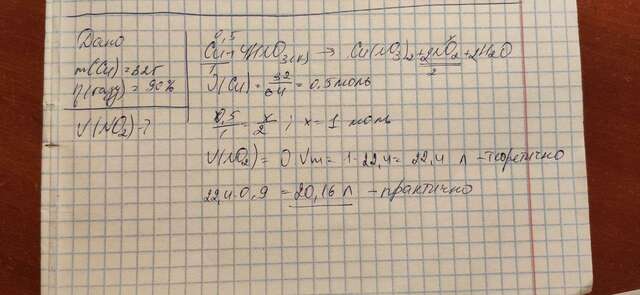 Дано
m(Cu) = 32г
η(газу) = 90%
V(NO2)-?
0,5 x
Cu + 4HNO3(к) → Cu(NO3)2 + 2NO2 + 2H2O
1 2
ν(Cu) = 32/64 = 0.5 моль
0,5/1 = x/2 ; x = 1 моль
V(NO2) = ν Vm = 1·22,4 = 22,4 л - теоретично
22,4·0,9 = 20,16 л - практично